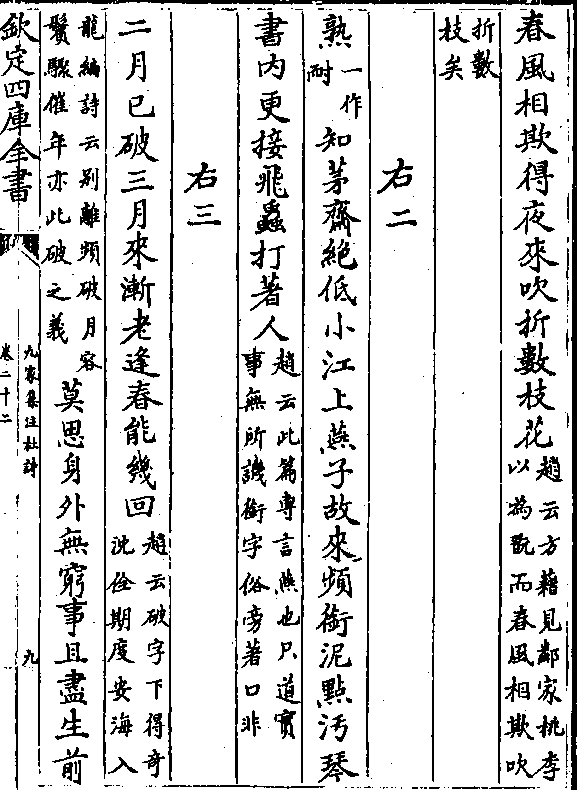 春風相欺得夜來吹折數枝花趙云方藉見鄰家桃李
以為翫而春風相欺吹
折數
枝矣
右二
熟一作
耐
知茅齋絶低小江上燕子故來頻銜泥點汚琴
書内更接飛蟲打著人趙云此篇専言燕也只道實
事無所譏銜字俗旁著口非
右三
二月已破三月來漸老逢春能幾回趙云破字下得奇
沈佺期度安海入
龍編詩云别離頻破月容
鬢驟催年亦此破之義
莫思身外無窮事且盡生前
欽定四庫全書
九家集注杜詩
卷二十二
九